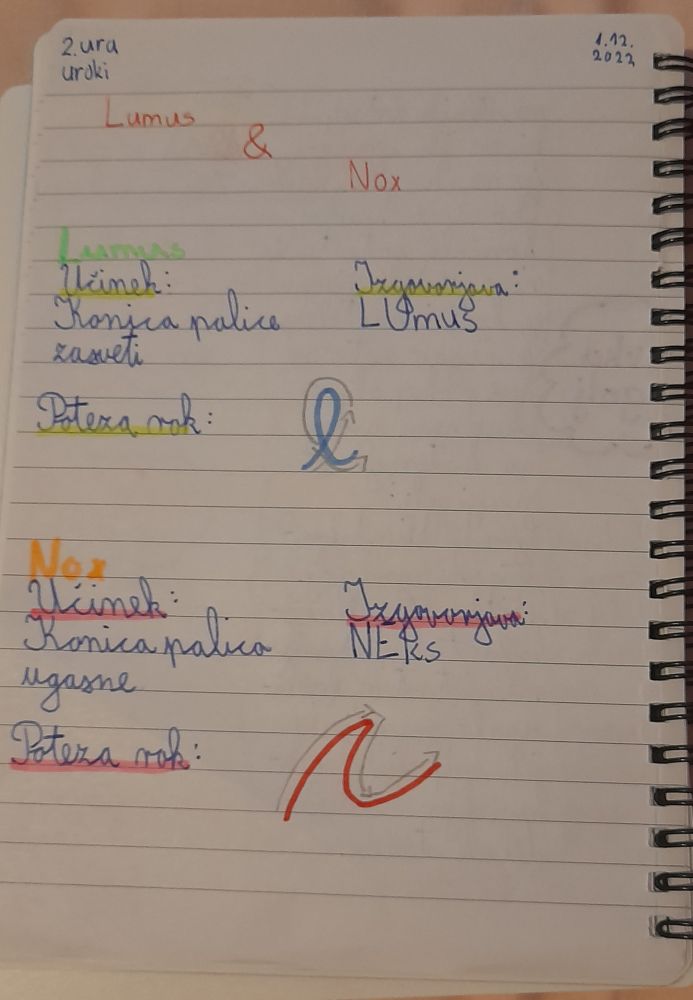 2. ura
uroki
1.12.
2022
Lumus
&
Nox
Lumus
Učinek:
Izgovorjava:
Konica palice
LUmus
zasveti
Poteza rok:
Nox
Učinek:
Izgovorjava:
Konica palica
NEks
ugasne
Poteza rok: